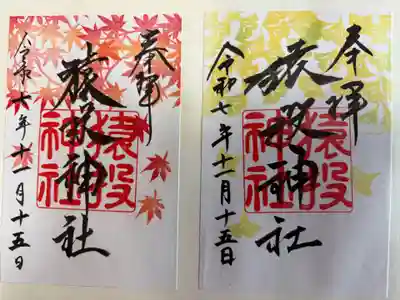 奉拝
猿投神社
猿投神社
令和六年十一月十五日
奉拝
猿投神社
猿投神社
令和七年十一月十五日